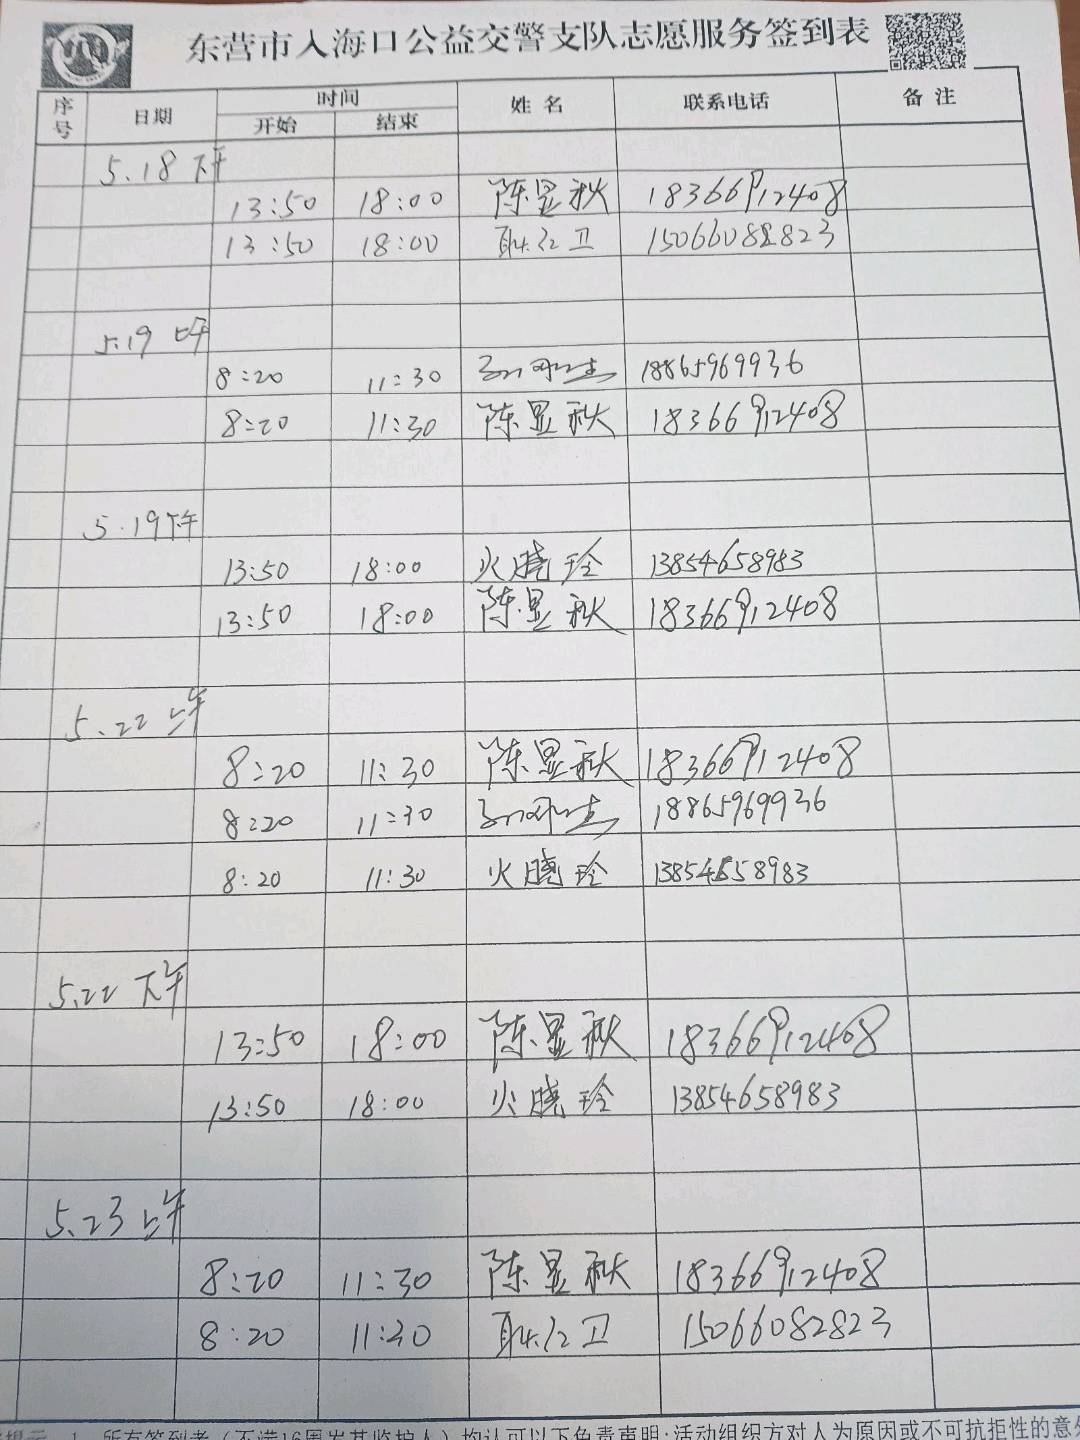 东营市入海口公益交警支队志愿服务签到表
序号 日期 时间 姓名 联系电话 备注
开始 结束
5.18 下午
13:50 18:00 陈显秋 18366912408
13:50 18:00 耿红卫 15066082823
5.19 上午
8:20 11:30 18865969936
8:20 11:30 陈显秋 18366912408
5.19 下午
13:50 18:00 火晓玲 13854658983
13:50 18:00 陈显秋 18366912408
5.22 上午
8:20 11:30 陈显秋 18366912408
8:20 11:30 18865969936
8:20 11:30 火晓玲 13854658983
5.22 下午
13:50 18:00 陈显秋 18366912408
13:50 18:00 火晓玲 13854658983
5.23 上午
8:20 11:30 陈显秋 18366912408
8:20 11:30 耿红卫 15066082823
提示 1、所有签到者(不满16周岁其监护人)均认可以下免责声明:活动组织方对人为原因或不可抗拒性的意外